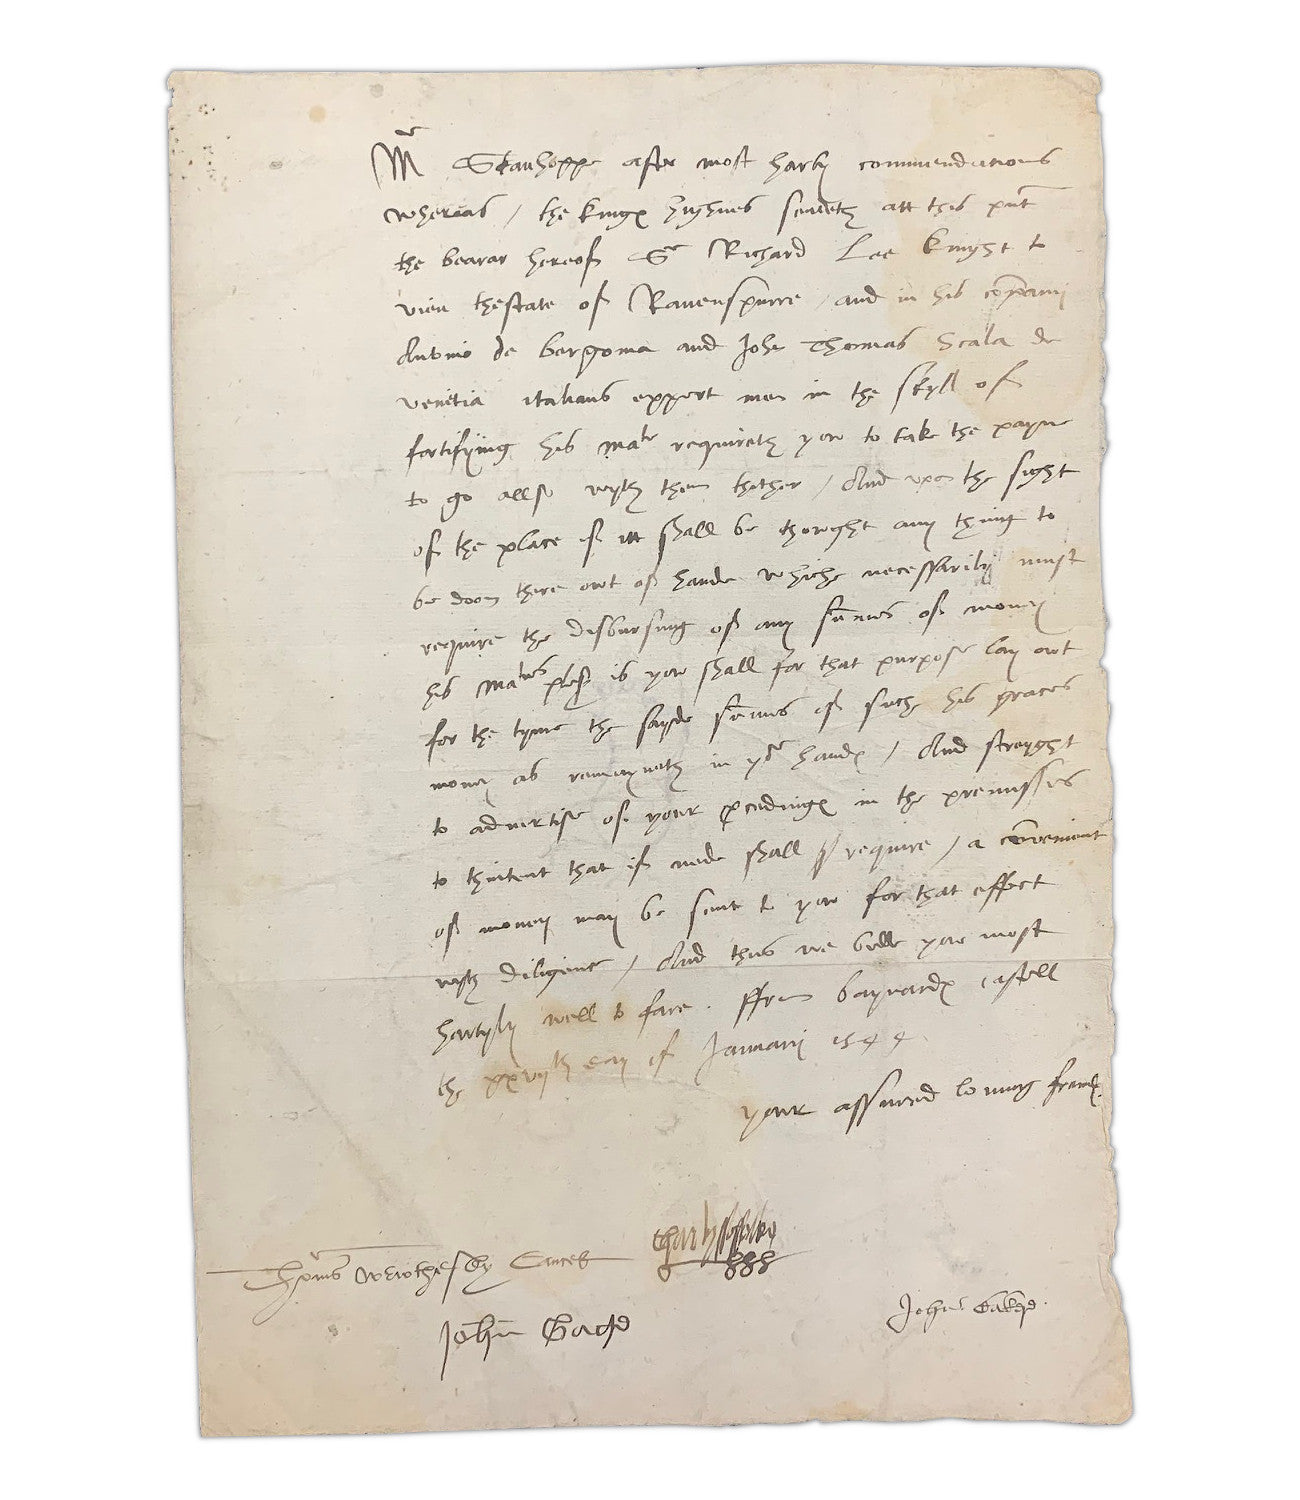 Mr Stanhoppe after most harty commendations
whereas / the kings highnes sendeth att this pnt
the bearar hereof Sr Richard Lee knyght to
vieu thestate of Ravenspurre / and in his company
Antonio de bergoma and John Thomas Scala de
venetia italians expert men in the skyll of
fortifijing his matie requireth yow to take the payne
to go allso wyth them thither / And upon the sight
of the place if itt shall be thowght any thing to
be doon there owt of hande whiche necessarily must
require the disbursing of any sumes of money
his maties pleasr is yow shall for that purpose lay owt
for the tyme the sayde sumes of suche his graces
money as remayneth in yor hands / And streyght
to advertise of your pcedings in the premisses
to thintent that if nede shall so require / a convenient
of money may be sent to yow for that effect
wyth diligence / And thus we bidde yow most
hartyly well to fare . ffrom baynards castell
the xxvijth day of Januarij 1544
your assured loving frends
Charlys Soffolke
Thomas Wriothesley Cancel
John Gage
John Baker